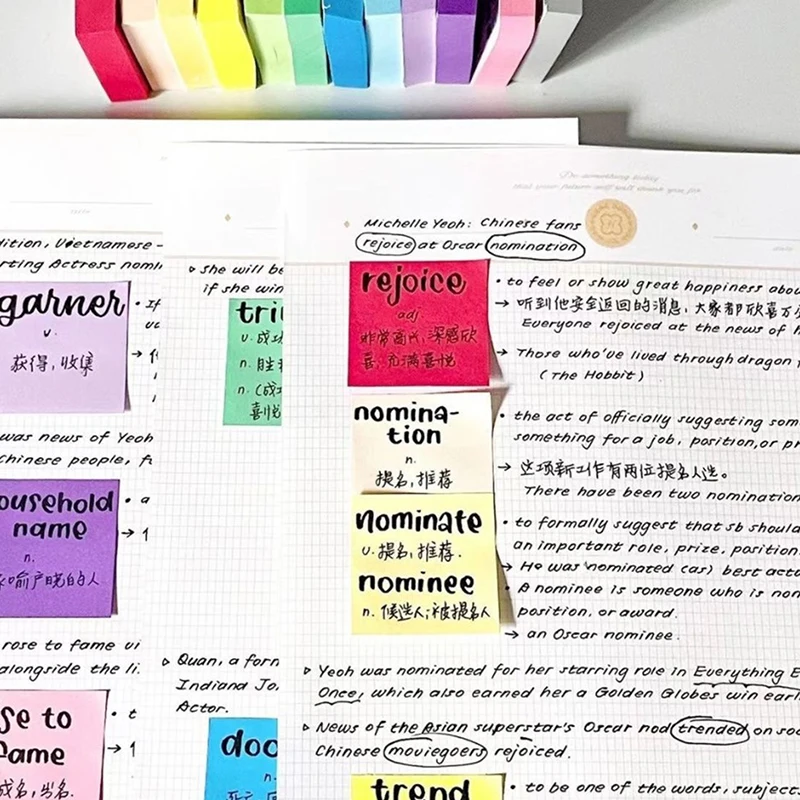 Do something today
that your future self will thank you for
Michelle Yeoh: Chinese fans
rejoice at Oscar nomination
rejoice
adj.
非常高兴,深感欣
喜,充满喜悦
• to feel or show great happiness abou
→ 听到他安全返回的消息,大家都欣喜万
Everyone rejoiced at the news of h
→ Those who've lived through dragon f
(The Hobbit)
nomina-
tion
n.
提名,推荐
• the act of officially suggesting som
something for a job, position, or pr
→ 这项新工作有两位提名人选。
There have been two nomination
nominate
v. 提名,推荐.
nominee
n. 候选人;被提名人
• to formally suggest that sb should
an important role, prize, position.
→ He was nominated (as) best acto
• A nominee is someone who is nom
position, or award.
→ an Oscar nominee.
▹ Yeoh was nominated for her starring role in Everything E
Once, which also earned her a Golden Globes win earl
▹ News of the Asian superstar's Oscar nod trended on soc
Chinese moviegoers rejoiced.
trend
• to be one of the words, subject
▹ she will be
if she win
tri
v. 成功
n. 胜利
n. (成功
喜悦
▹ Quan, a form
Indiana Jo.
Actor.
doc
n.
dition, Vietnamese-
rting Actress nomi
garner
v.
获得,收集
• If
was news of Yeoh
Chinese people, f
ousehold
name
n.
喻户晓的人
• a
rose to fame vi
alongside the li.
se to
fame
成名,出名.
• t